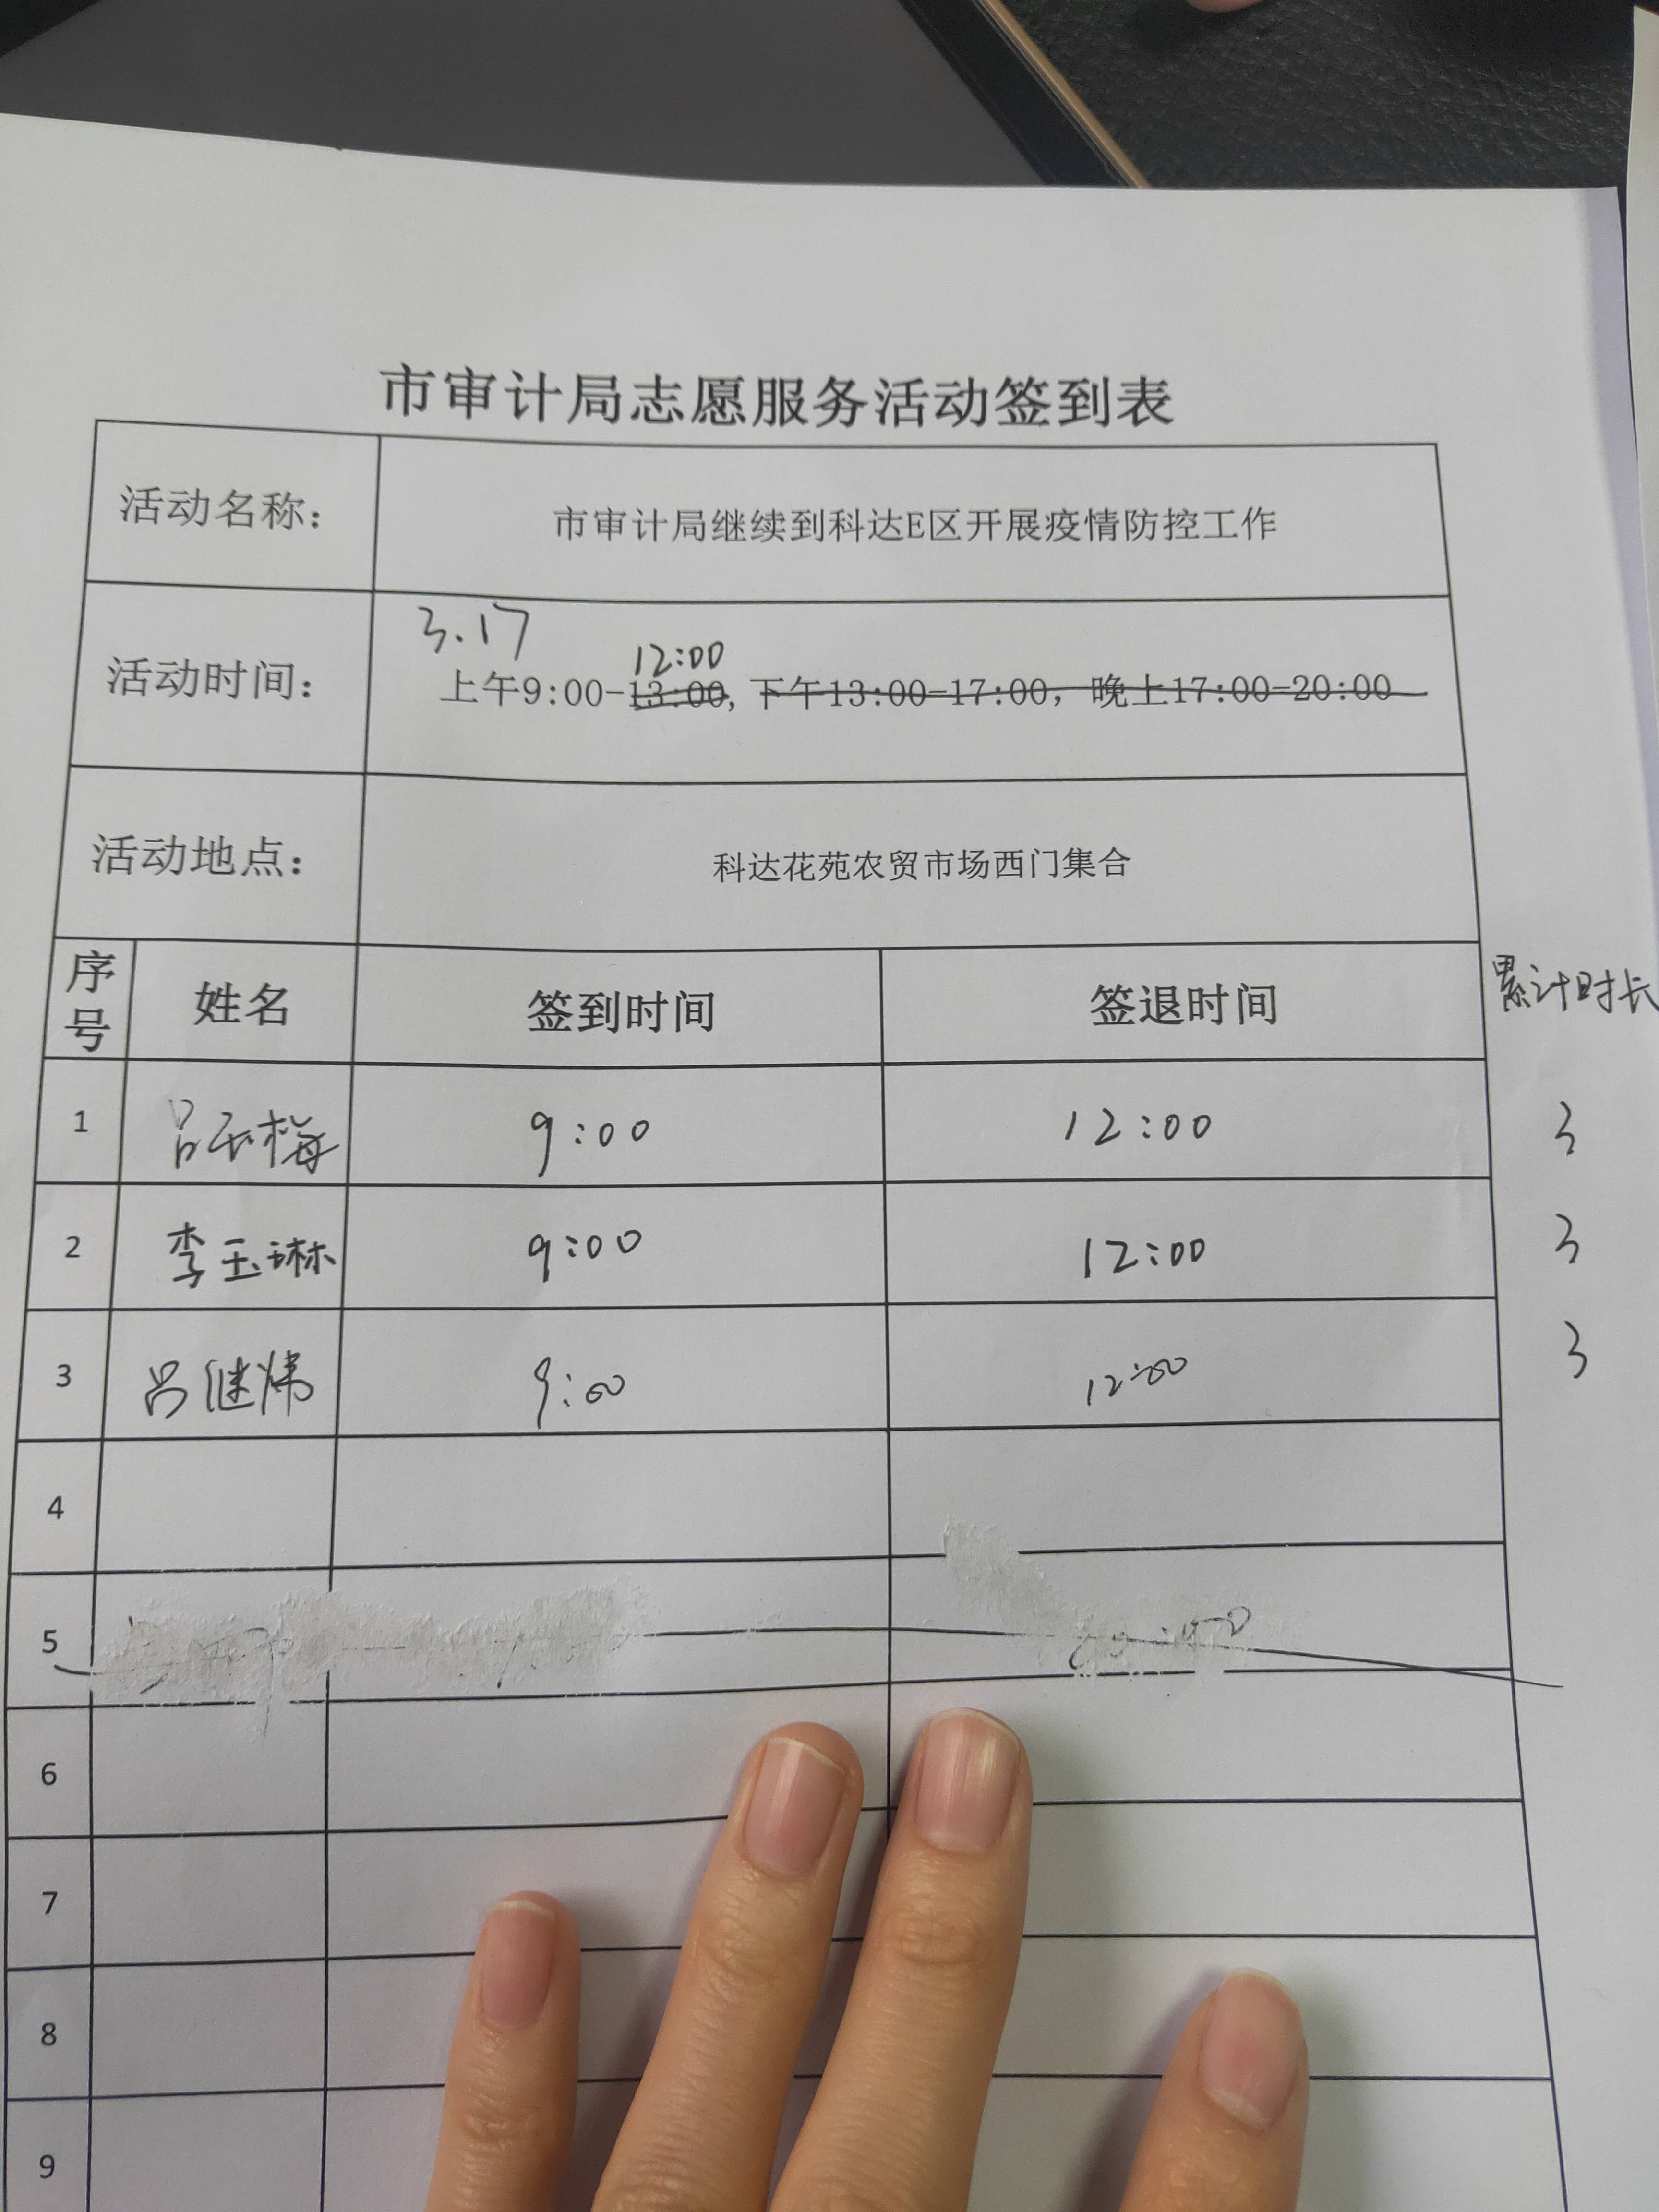 市审计局志愿服务活动签到表
活动名称： 市审计局继续到科达E区开展疫情防控工作
3.17
12:00
活动时间： 上午9:00-13:00，下午13:00-17:00，晚上17:00-20:00
活动地点： 科达花苑农贸市场西门集合
序号 姓名 签到时间 签退时间 累计时长
1 吕玉梅 9:00 12:00 3
2 李玉琳 9:00 12:00 3
3 吕继炜 9:00 12:00 3
4
5
6
7
8
9